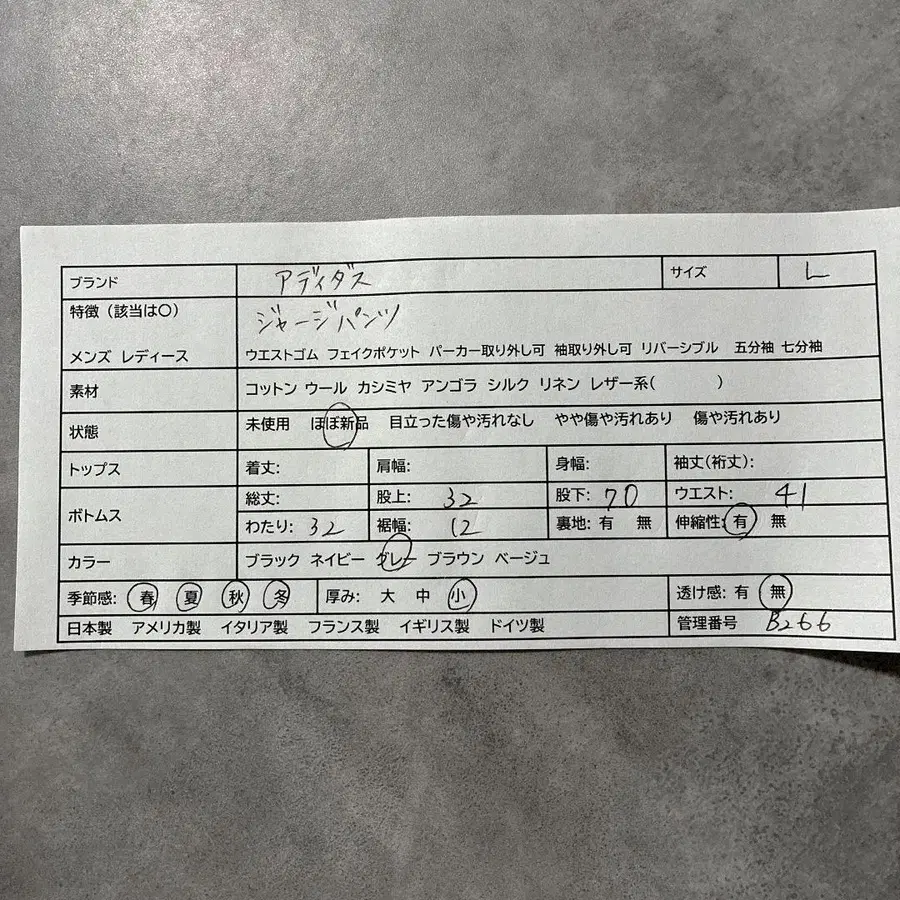 ブランド アディダス サイズ L
特徴（該当は〇） ジャージパンツ
メンズ レディース ウエストゴム フェイクポケット パーカー取り外し可 袖取り外し可 リバーシブル 五分袖 七分袖
素材 コットン ウール カシミヤ アンゴラ シルク リネン レザー系( )
状態 未使用 ほぼ新品 目立った傷や汚れなし やや傷や汚れあり 傷や汚れあり
トップス 着丈: 肩幅: 身幅: 袖丈(裄丈):
ボトムス 総丈: 股上: 32 股下: 70 ウエスト: 41
わたり: 32 裾幅: 12 裏地: 有 無 伸縮性: 有 無
カラー ブラック ネイビー グレー ブラウン ベージュ
季節感: 春 夏 秋 冬 厚み: 大 中 小 透け感: 有 無
日本製 アメリカ製 イタリア製 フランス製 イギリス製 ドイツ製 管理番号 B266